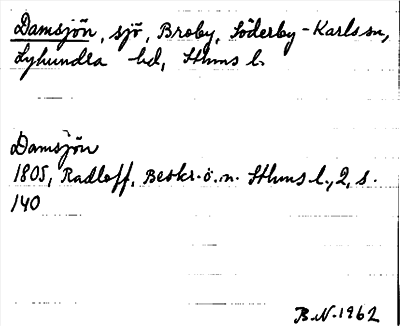 Damsjön, sjö, Broby, Söderby-Karls sn,
Lyhundra hd, Sthms l.
Damsjön
1805, Radloff, Beskr. ö. n. Sthms l., 2, s.
140
B.N. 1962